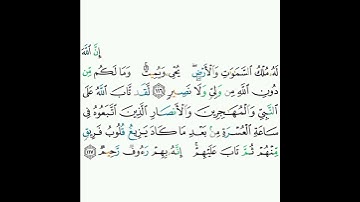 إِنَّ اللَّهَ
لَهُ مُلْكُ السَّمَٰوَٰتِ وَالْأَرْضِ ۖ يُحْيِي وَيُمِيتُ ۚ وَمَا لَكُم مِّن
دُونِ اللَّهِ مِن وَلِيٍّ وَلَا نَصِيرٍ ﴿١١٦﴾ لَّقَد تَّابَ اللَّهُ عَلَى
النَّبِيِّ وَالْمُهَاجِرِينَ وَالْأَنصَارِ الَّذِينَ اتَّبَعُوهُ فِي
سَاعَةِ الْعُسْرَةِ مِنۢ بَعْدِ مَا كَادَ يَزِيغُ قُلُوبُ فَرِيقٍ
مِّنْهُمْ ثُمَّ تَابَ عَلَيْهِمْ ۚ إِنَّهُ بِهِمْ رَءُوفٌ رَّحِيمٌ ﴿١١٧﴾